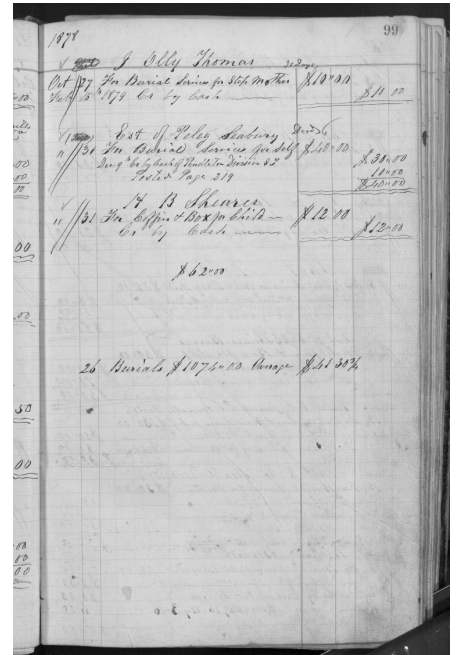 99
1878
J Olly Thomas 30 days
Oct 27 For Burial Services for Step Mother $10.00
Feb 15 1879 Cr by Cash $10.00
Est of Peleg Seabury
" 31 For Burial Services for Self $40.00
Cr by Cash of Division $30.00
10.00
Posted Page 219 $40.00
H B Shearer
" 31 For Coffin & Box for Child $12.00
Cr by Cash $12.00
$62.00
26 Burials $1074.00 Average $41 30¾